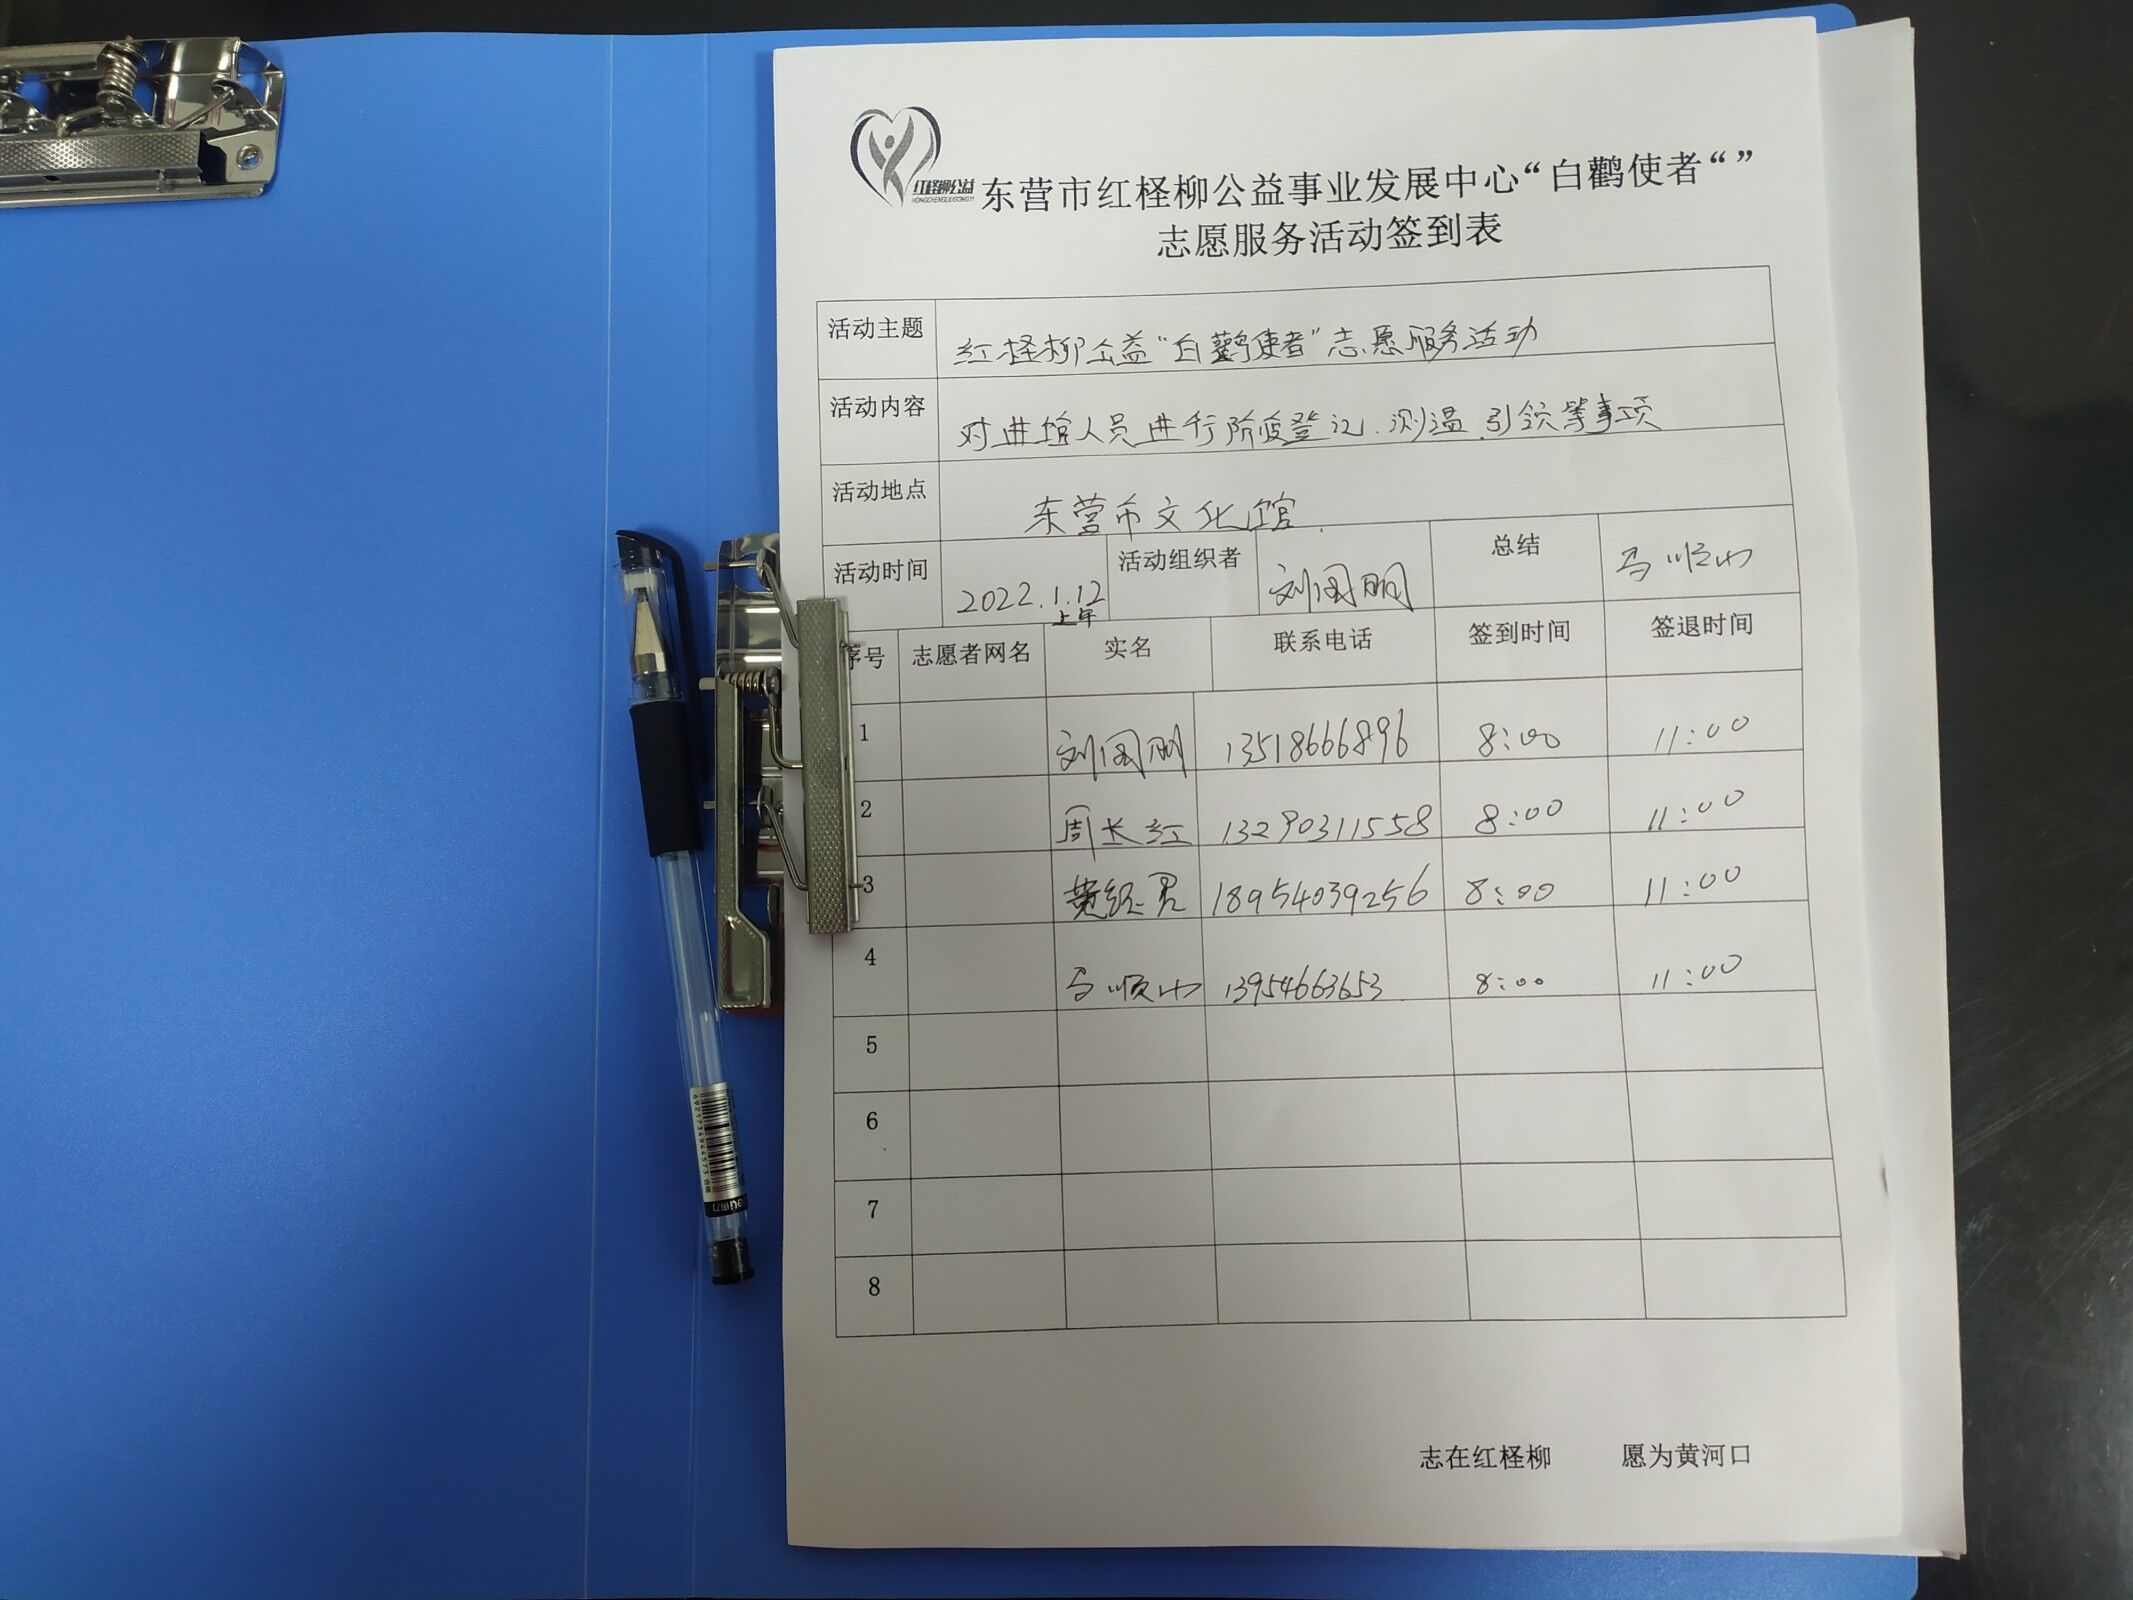 红柽柳公益
HONGCHENGLIUGONGYI
东营市红柽柳公益事业发展中心“白鹳使者“”
志愿服务活动签到表
活动主题 红柽柳公益“白鹳使者”志愿服务活动
活动内容 对进馆人员进行防疫登记、测温、引领等事项
活动地点 东营市文化馆
活动时间 2022.1.12 上午 活动组织者 刘国朋 总结 马顺山
序号 志愿者网名 实名 联系电话 签到时间 签退时间
1 刘国朋 13518666896 8:00 11:00
2 周长红 13290311558 8:00 11:00
3 黄经 18954039256 8:00 11:00
4 马顺山 13954663653 8:00 11:00
5
6
7
8
志在红柽柳 愿为黄河口
6921734944573
deli得力